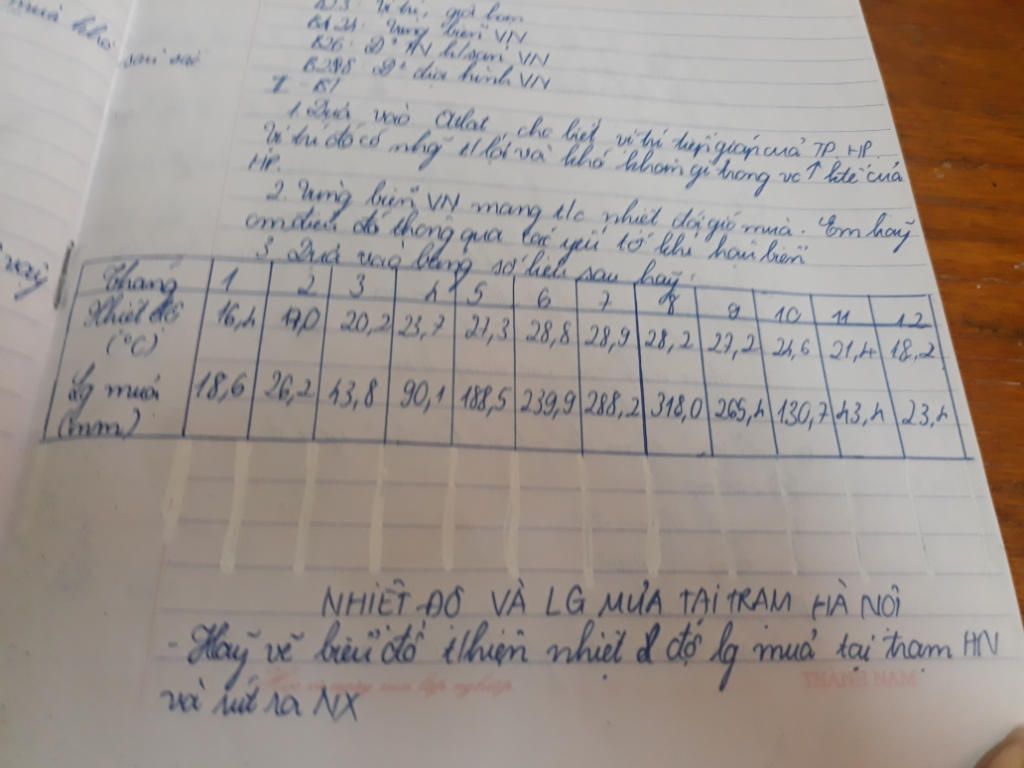 mùa khô
sâu sắc
B23: Vị trí, giới hạn
B424: Vùng biển VN
B26: Đ² TN k/sản VN
B2878: Đ² địa hình VN
II - BT
1. Dựa vào Atlat, cho biết vị trí tiếp giáp của TP. HP.
Vị trí đó có nhg t/lợi và khó khăn gì trong vc ↑ ktế của
HP.
2. Vùng biển VN mang t/c nhiệt đới gió mùa. Em hãy
cm điều đó thông qua các yếu tố khí hậu biển
3. Dựa vào bảng số liệu sau hãy:
Tháng 1 2 3 4 5 6 7 8 9 10 11 12
Nhiệt độ (°C) 16,4 17,0 20,2 23,7 27,3 28,8 28,9 28,2 27,2 24,6 21,4 18,2
Lg mưa (mm) 18,6 26,2 43,8 90,1 188,5 239,9 288,2 318,0 265,4 130,7 43,4 23,4
NHIỆT ĐỘ VÀ LG MƯA TẠI TRẠM HÀ NỘI
- Hãy vẽ biểu đồ t/hiện nhiệt độ lg mưa tại trạm HN
và rút ra NX
THÀNH NAM